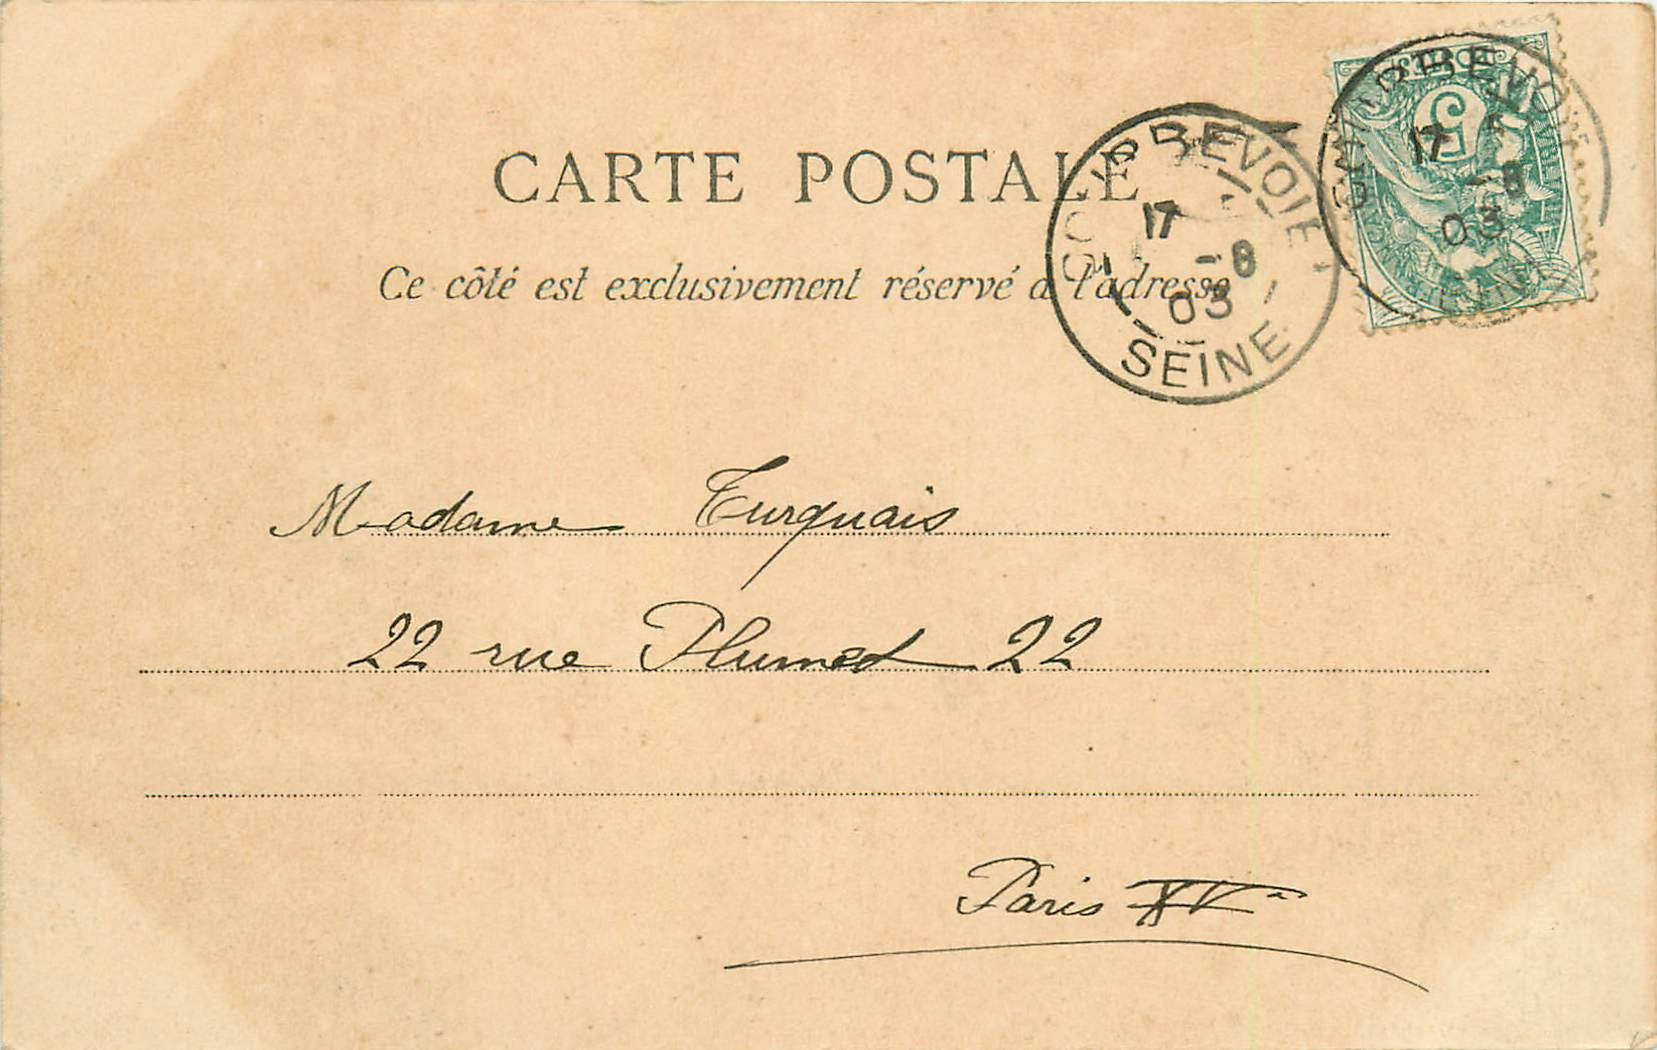 CARTE POSTALE
Ce côté est exclusivement réservé à l'adresse
COURBEVOIE
17 -8
03
SEINE
COURBEVOIE
5
17 -8
03
Madame Turquais
22 rue Plumet 22
Paris XVe